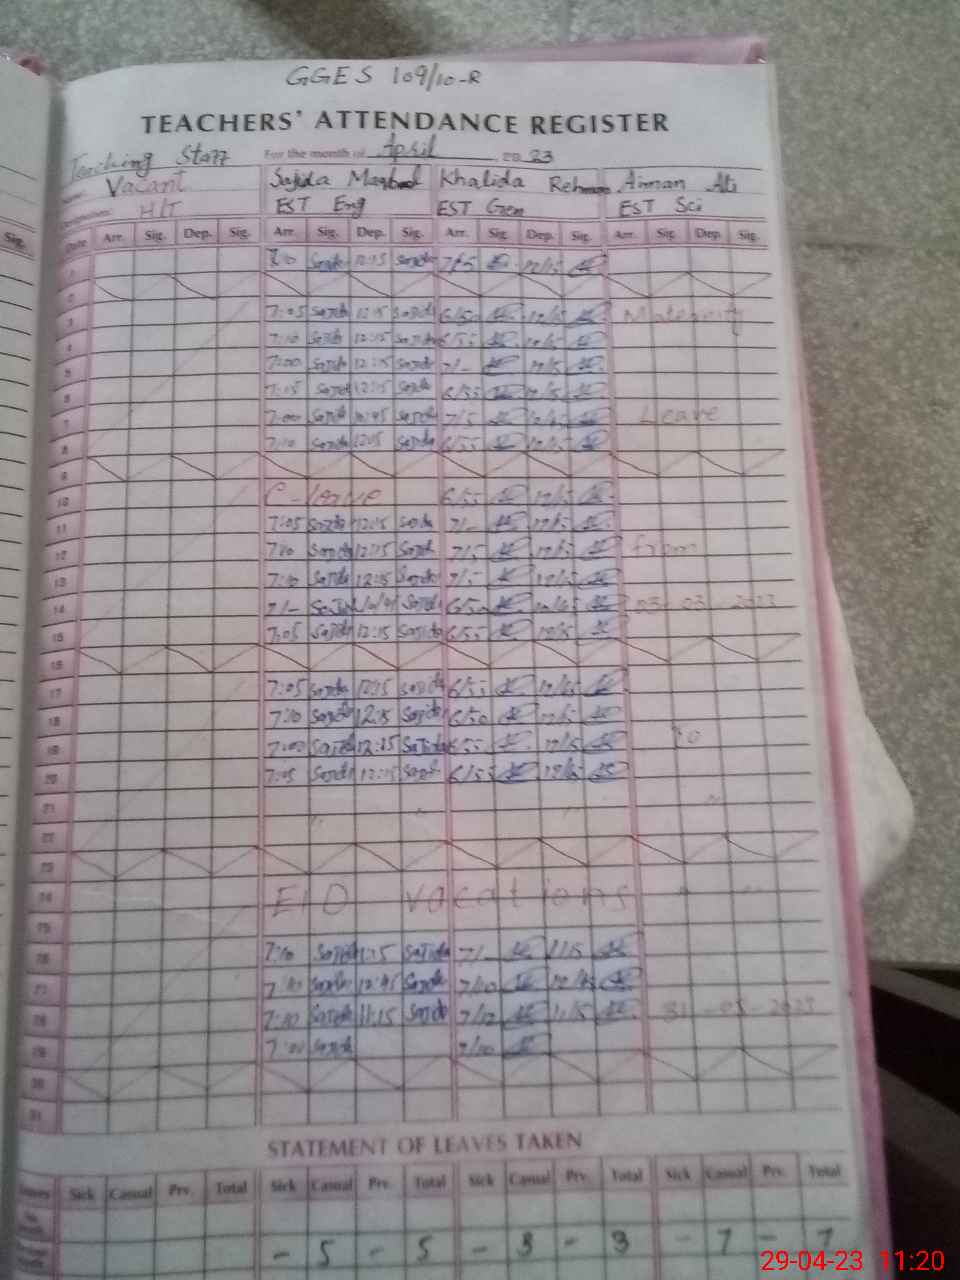 GGES 109/10-R
TEACHERS' ATTENDANCE REGISTER
Teaching Staff For the month of April 2023
Vacant Sajida Maqbool Khalida Rehman Aiman Ali
H/T EST Eng EST Gen EST Sci
Sig. Date Arr. Sig. Dep. Sig. Arr. Sig. Dep. Sig. Arr. Sig. Dep. Sig. Arr. Sig. Dep. Sig.
1 7:10 Sajida 12:15 Sajida 7/5 12/15
2
3 7:05 Sajida 12:15 Sajida 6/50 12/15 Maternity
4 7:10 Sajida 12:15 Sajida 6/55 12/15
5 7:00 Sajida 12:15 Sajida 7/- 12/15
6 7:15 Sajida 12:15 Sajida 6/55 12/15
7 7:00 Sajida 10:45 Sajida 7/5 Leave
8 7:10 Sajida 1205 Sajida 6/55 12/15
9
10 C-leave 6/55 12/15
11 7:05 Sajida 12:15 Sajida 7/- 12/15
12 7:10 Sajida 12:15 Sajida 7/5 12/15 from
13 7:10 Sajida 12:15 Sajida 7/5 12/15
14 7/- Sajida Sajida 6/50 03-03-2023
15 7:05 Sajida 12:15 Sajida 6/55 12/15
16
17 7:05 Sajida 12:15 Sajida 6/55 12/15
18 7:10 Sajida 12:15 Sajida 6/50 12/15
19 7:00 Sajida 12:15 Sajida 6/55 12/15 To
20 7:05 Sajida 12:15 Sajida 6/55 12/15
21
22
23
24 EID Vacations
25
26 7:10 Sajida 11:15 Sajida 7/- 11/15
27 7:10 Sajida 12:45 Sajida 7/10 12/45
28 7:10 Sajida 11:15 Sajida 7/12 11/15 31-05-2023
29 7:00 Sajida 7/10
30
31
STATEMENT OF LEAVES TAKEN
Leaves Sick Casual Prv. Total Sick Casual Prv. Total Sick Casual Prv. Total Sick Casual Prv. Total
- 5 - 5 - 3 - 3 - 7 - 7
29-04-23 11:20